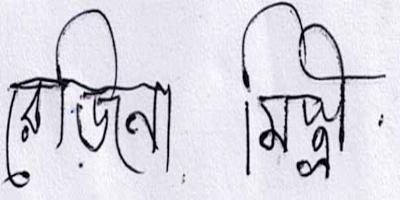 রেজিনা মিস্ত্রী.